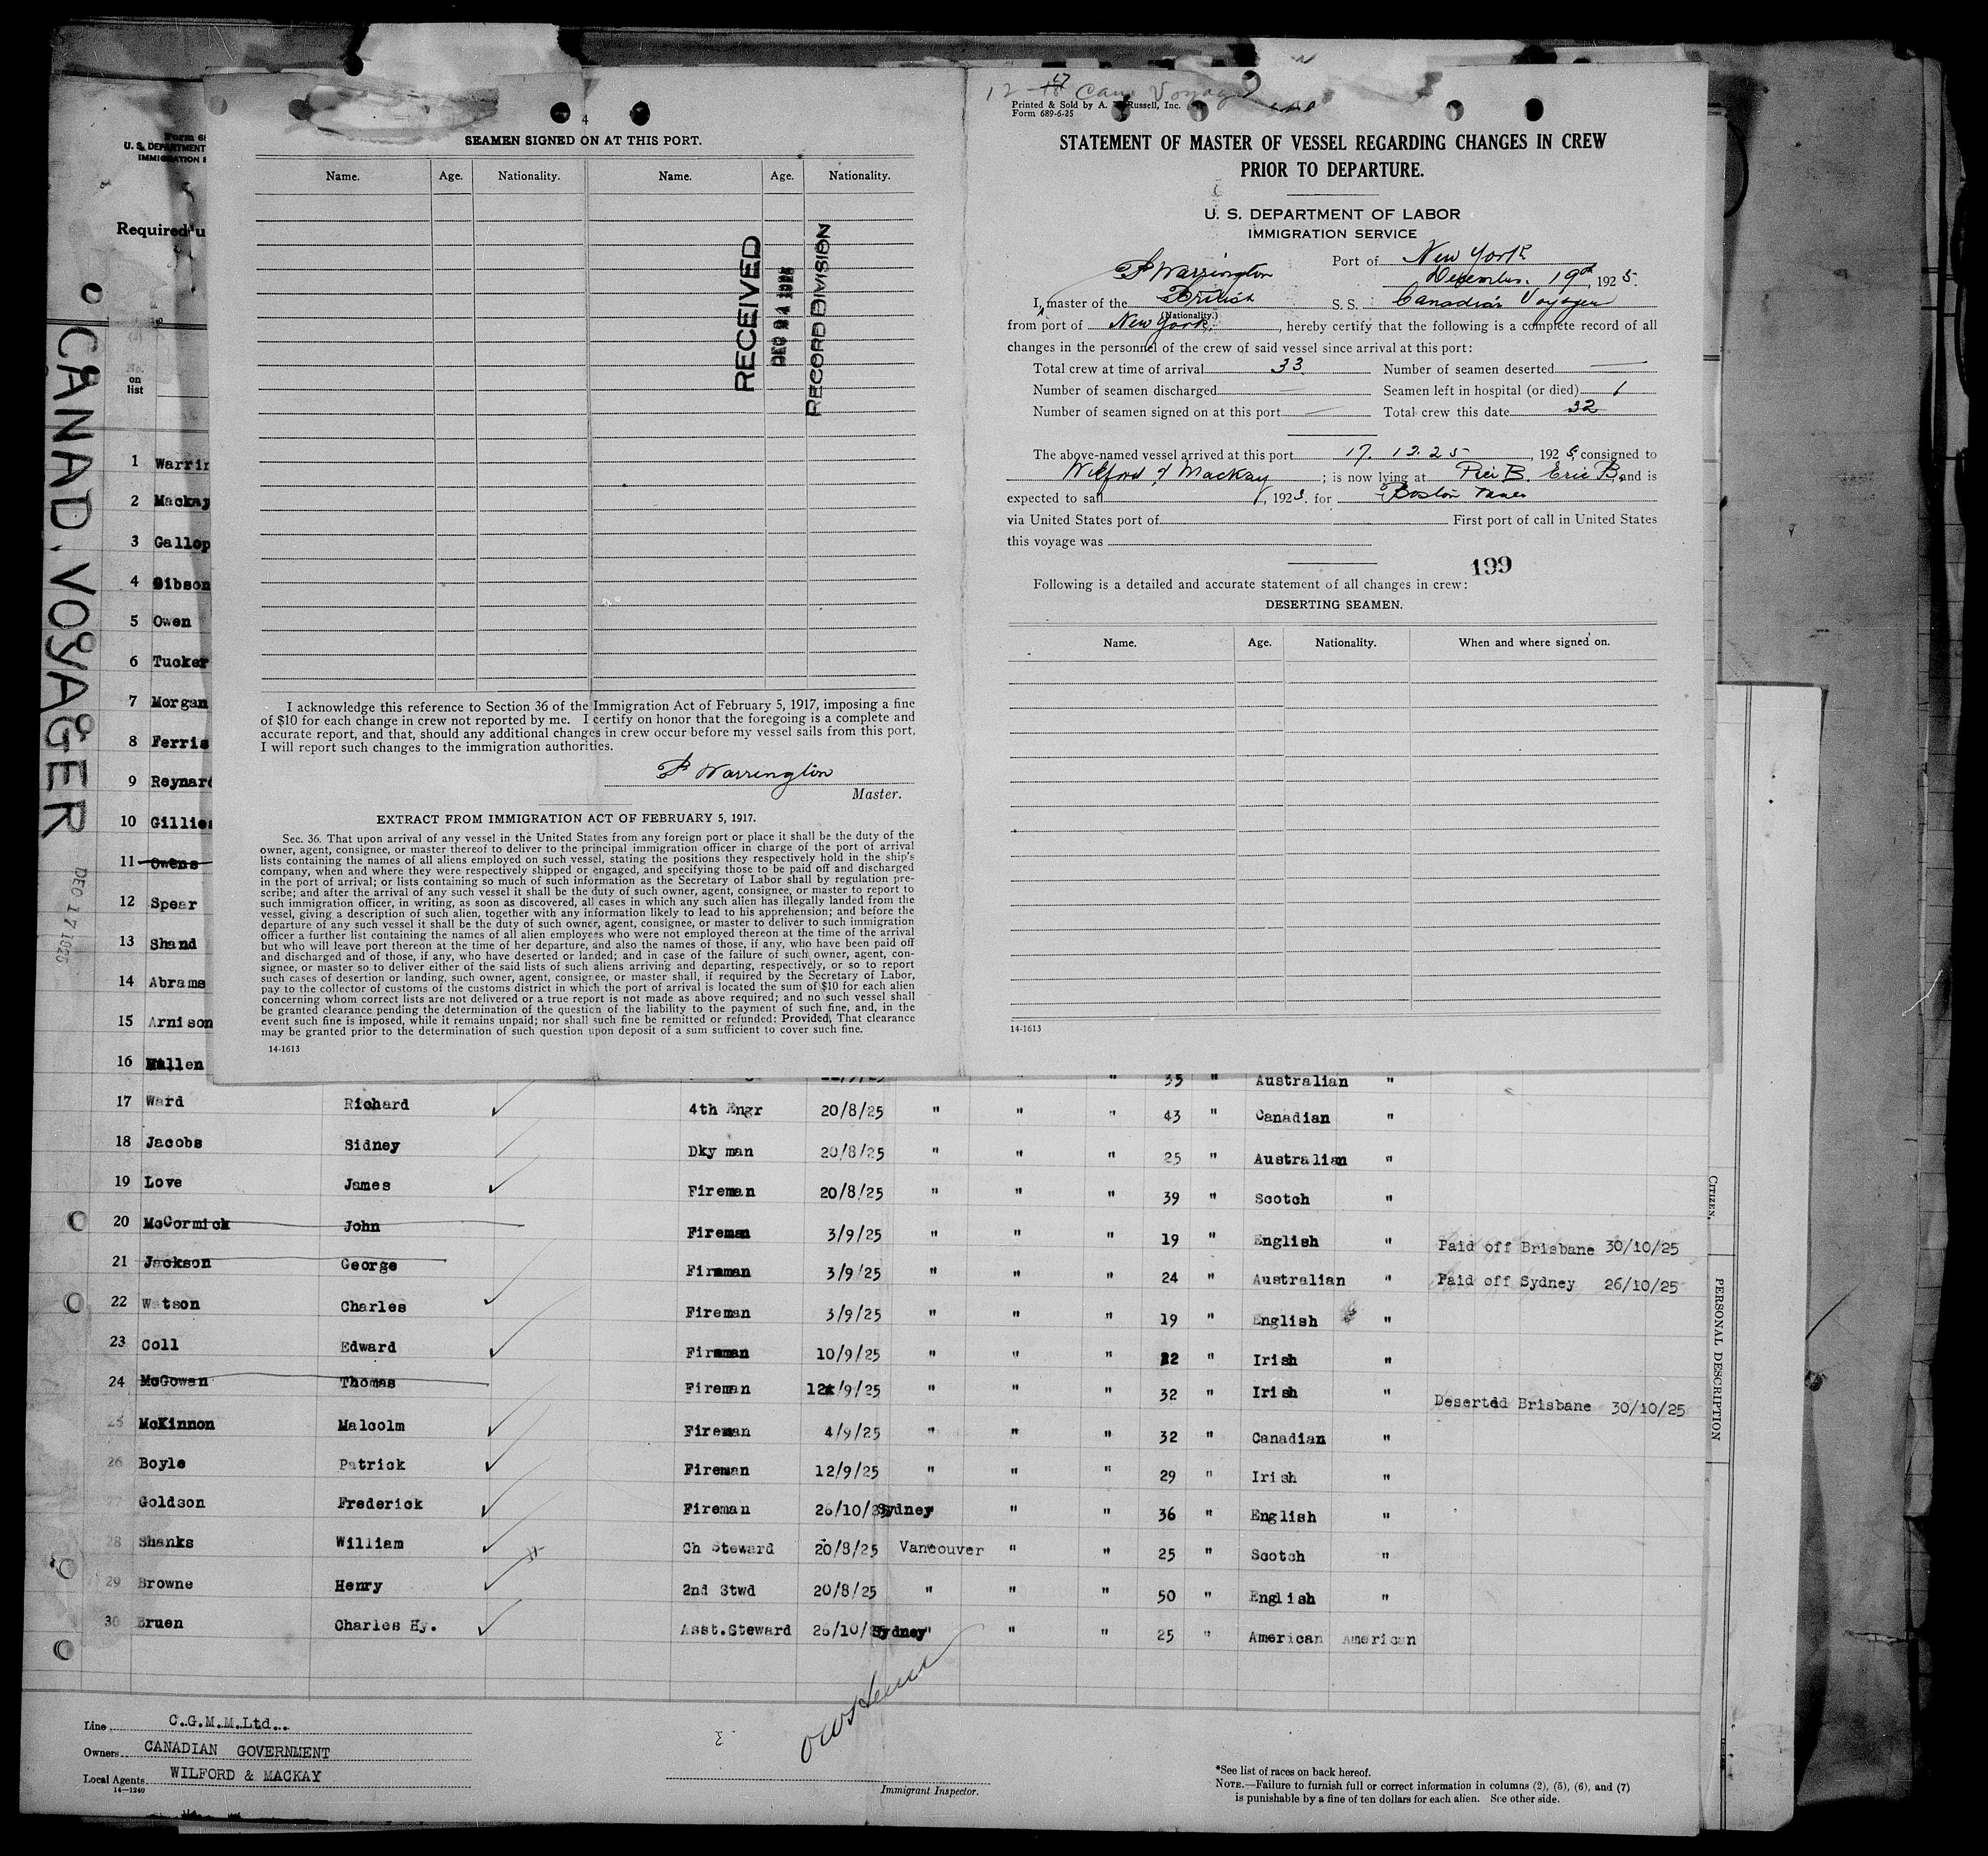 4
SEAMEN SIGNED ON AT THIS PORT.
Name. Age. Nationality. Name. Age. Nationality.
RECEIVED
DEC 24 1925
RECORD DIVISION
I acknowledge this reference to Section 36 of the Immigration Act of February 5, 1917, imposing a fine
of $10 for each change in crew not reported by me. I certify on honor that the foregoing is a complete and
accurate report, and that, should any additional changes in crew occur before my vessel sails from this port,
I will report such changes to the immigration authorities.
P Warrington
Master.
EXTRACT FROM IMMIGRATION ACT OF FEBRUARY 5, 1917.
Sec. 36. That upon arrival of any vessel in the United States from any foreign port or place it shall be the duty of the
owner, agent, consignee, or master thereof to deliver to the principal immigration officer in charge of the port of arrival
lists containing the names of all aliens employed on such vessel, stating the positions they respectively hold in the ship's
company, when and where they were respectively shipped or engaged, and specifying those to be paid off and discharged
in the port of arrival; or lists containing so much of such information as the Secretary of Labor shall by regulation pre-
scribe; and after the arrival of any such vessel it shall be the duty of such owner, agent, consignee, or master to report to
such immigration officer, in writing, as soon as discovered, all cases in which any such alien has illegally landed from the
vessel, giving a description of such alien, together with any information likely to lead to his apprehension; and before the
departure of any such vessel it shall be the duty of such owner, agent, consignee, or master to deliver to such immigration
officer a further list containing the names of all alien employees who were not employed thereon at the time of the arrival
but who will leave port thereon at the time of her departure, and also the names of those, if any, who have been paid off
and discharged and of those, if any, who have deserted or landed; and in case of the failure of such owner, agent, con-
signee, or master so to deliver either of the said lists of such aliens arriving and departing, respectively, or so to report
such cases of desertion or landing, such owner, agent, consignee, or master shall, if required by the Secretary of Labor,
pay to the collector of customs of the customs district in which the port of arrival is located the sum of $10 for each alien
concerning whom correct lists are not delivered or a true report is not made as above required; and no such vessel shall
be granted clearance pending the determination of the question of the liability to the payment of such fine, and, in the
event such fine is imposed, while it remains unpaid; nor shall such fine be remitted or refunded: Provided, That clearance
may be granted prior to the determination of such question upon deposit of a sum sufficient to cover such fine.
14-1613
12 - 17 Can. Voyager
Printed & Sold by A. Russell, Inc.
Form 689-6-25
STATEMENT OF MASTER OF VESSEL REGARDING CHANGES IN CREW
PRIOR TO DEPARTURE.
U. S. DEPARTMENT OF LABOR
IMMIGRATION SERVICE
Port of New York
P Warrington December 19th, 1925.
I, master of the British S. S. Canadian Voyager
(Nationality.)
from port of New York, hereby certify that the following is a complete record of all
changes in the personnel of the crew of said vessel since arrival at this port:
Total crew at time of arrival 33 Number of seamen deserted —
Number of seamen discharged — Seamen left in hospital (or died) 1
Number of seamen signed on at this port — Total crew this date 32
The above-named vessel arrived at this port 17. 12. 25, 1925, consigned to
Wilford & Mackay; is now lying at Pier B. Erie B, and is
expected to sail , 192 . for Boston Mass
via United States port of First port of call in United States
this voyage was
199
Following is a detailed and accurate statement of all changes in crew:
DESERTING SEAMEN.
Name. Age. Nationality. When and where signed on.
14-1613
Form 68
U. S. DEPARTMENT
IMMIGRATION S
Required u
CANAD. VOYAGER
DEC 17 1925
No.
on
list
1 Warrin
2 Mackay
3 Gallop
4 Gibson
5 Owen
6 Tucker
7 Morgan
8 Ferris
9 Reynard
10 Gillies
11 Owens
12 Spear
13 Shand
14 Abrams
15 Arnison
16 Millen 35 " Australian "
17 Ward Richard 4th Engr 20/8/25 " " " 43 " Canadian "
18 Jacobs Sidney Dky man 20/8/25 " " " 25 " Australian "
19 Love James Fireman 20/8/25 " " " 39 " Scotch "
20 McCormick John Fireman 3/9/25 " " " 19 " English " Paid off Brisbane 30/10/25
21 Jackson George Fireman 3/9/25 " " " 24 " Australian " Paid off Sydney 26/10/25
22 Watson Charles Fireman 3/9/25 " " " 19 " English "
23 Coll Edward Fireman 10/9/25 " " " 22 " Irish "
24 McGowan Thomas Fireman 12/9/25 " " " 32 " Irish " Deserted Brisbane 30/10/25
25 McKinnon Malcolm Fireman 4/9/25 " " " 32 " Canadian "
26 Boyle Patrick Fireman 12/9/25 " " " 29 " Irish "
27 Goldson Frederick Fireman 26/10/25 Sydney " " 36 " English "
28 Shanks William Ch Steward 20/8/25 Vancouver " " 25 " Scotch "
29 Browne Henry 2nd Stwd 20/8/25 " " " 50 " English "
30 Bruen Charles Hy. Asst.Steward 26/10/25 Sydney " " 25 " American American
Line C.G.M.M.Ltd..
Owners CANADIAN GOVERNMENT
Local Agents WILFORD & MACKAY
14-1240
Immigrant Inspector.
*See list of races on back hereof.
NOTE.—Failure to furnish full or correct information in columns (2), (5), (6), and (7)
is punishable by a fine of ten dollars for each alien. See other side.
CITIZEN,
PERSONAL DESCRIPTION